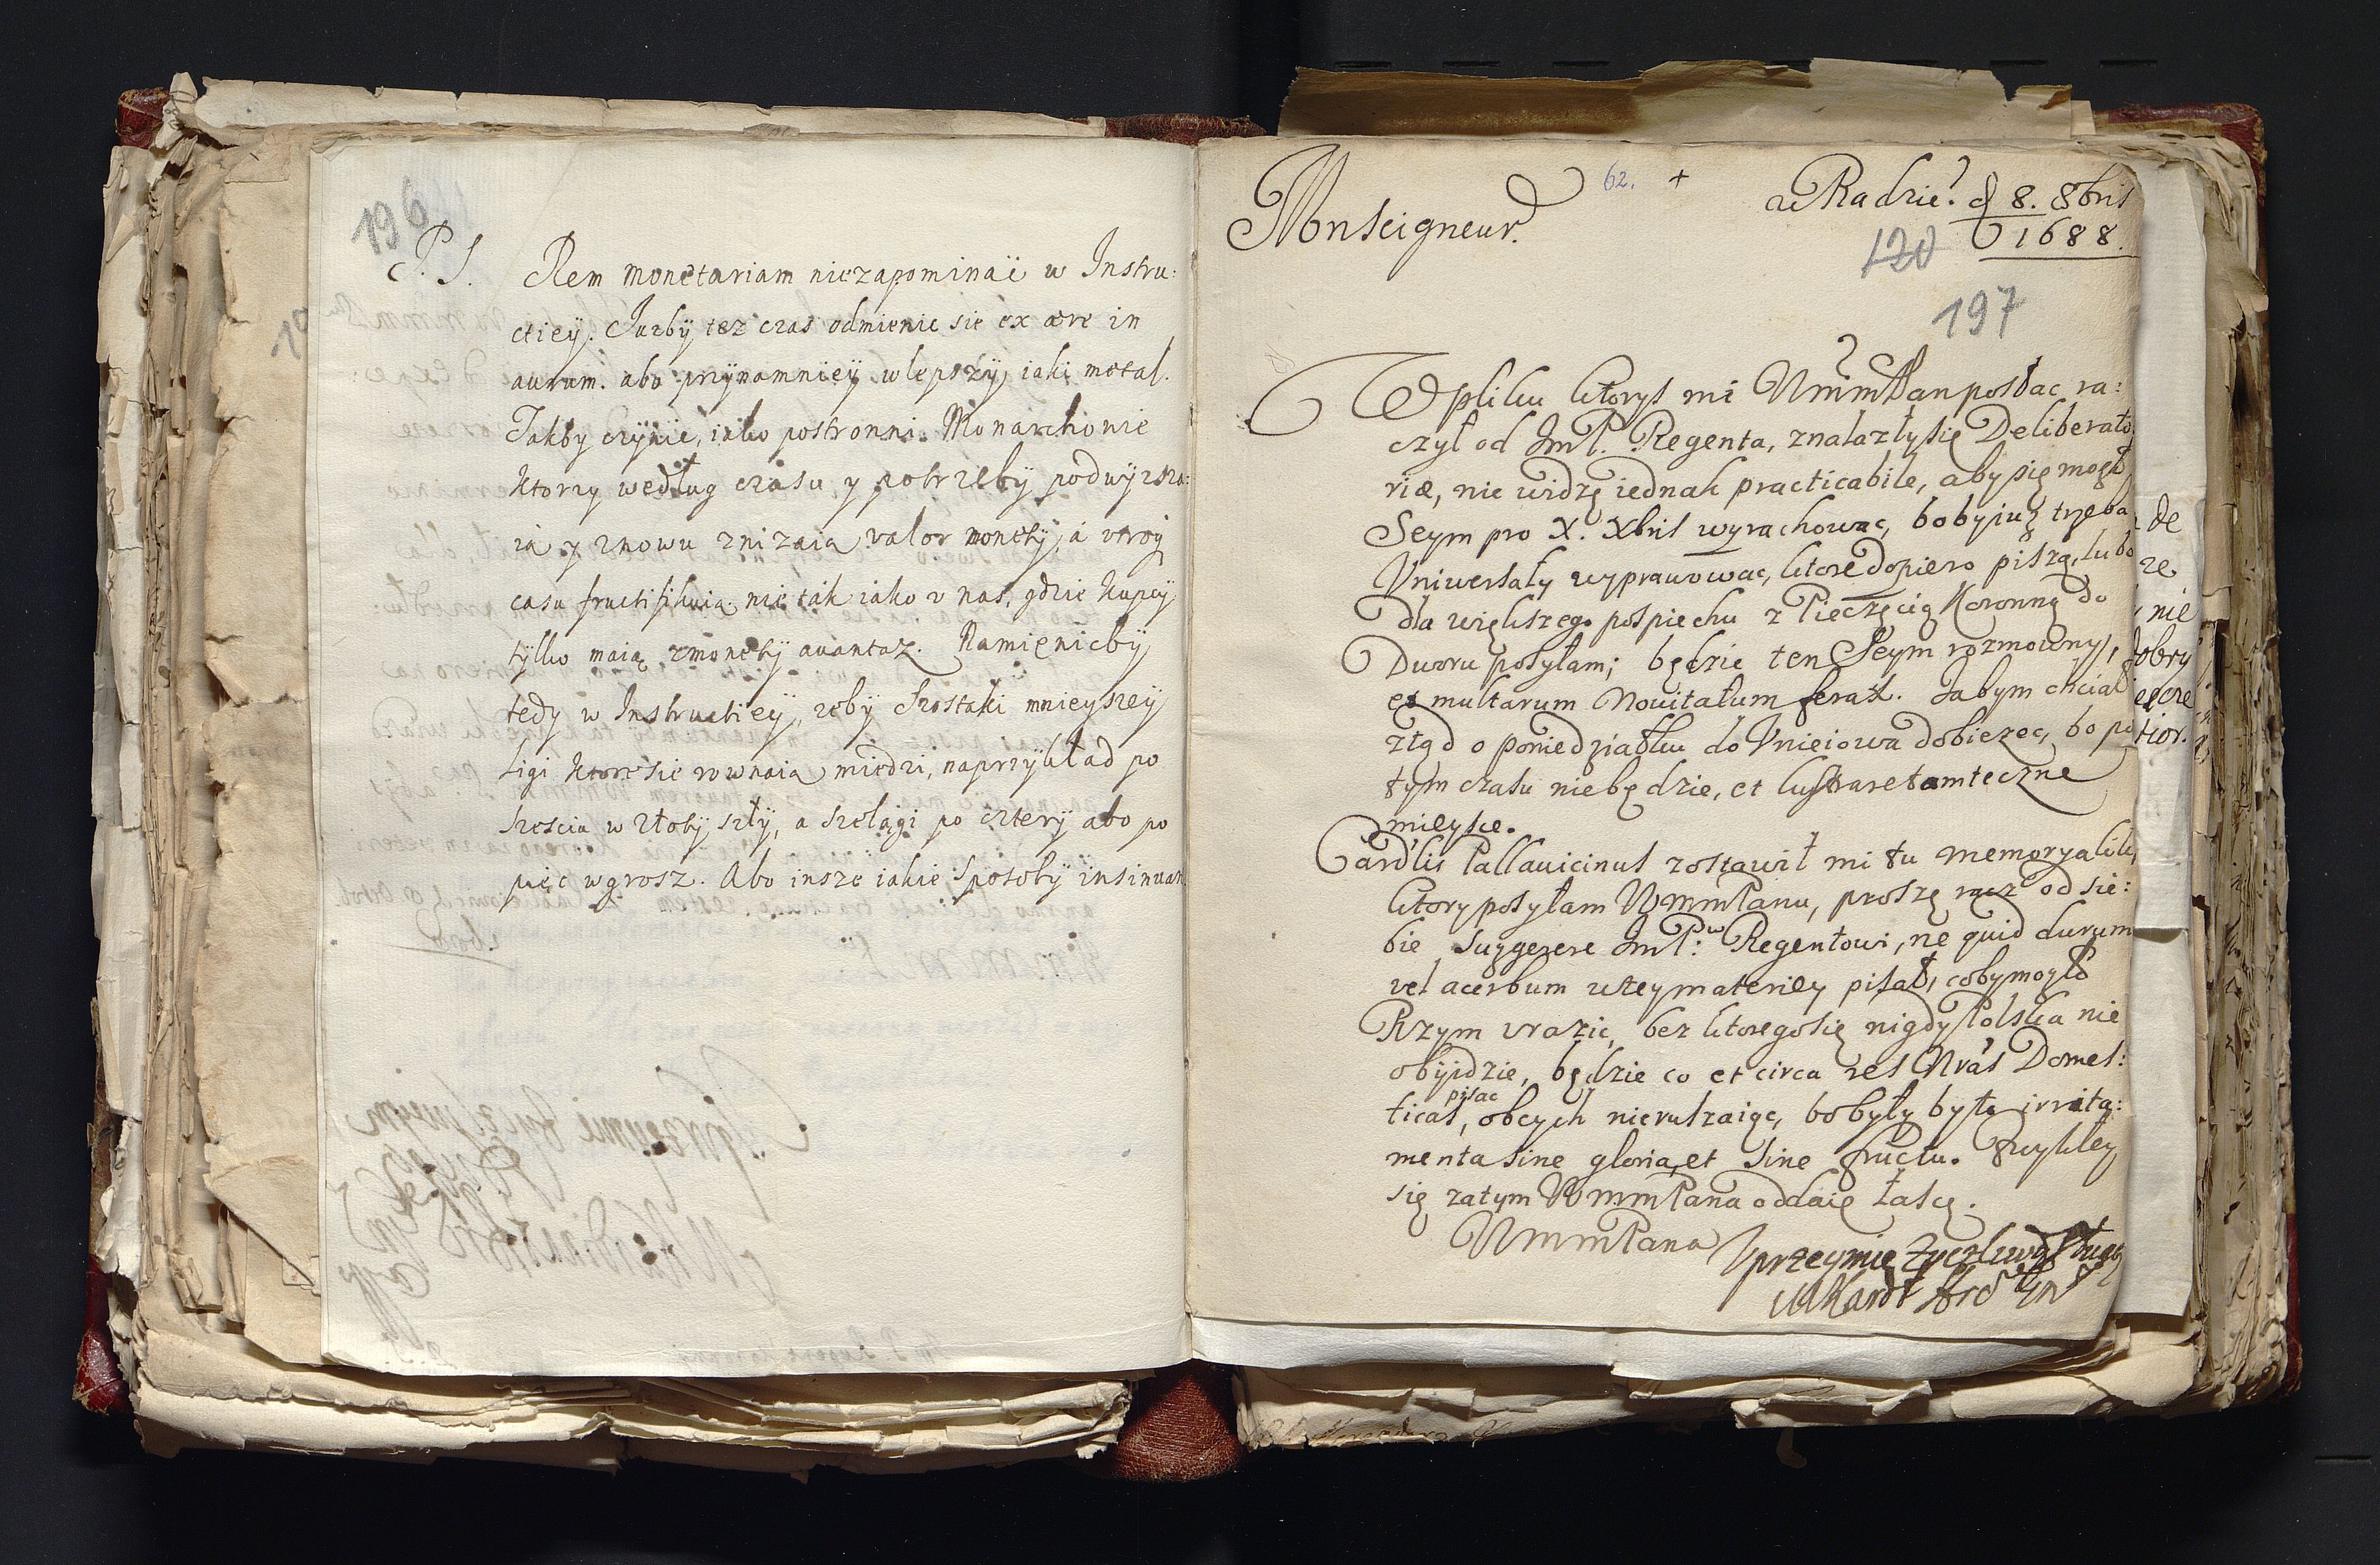 196
P. S. Rem monetariam niezapominaic w Instru:
ctiey. Iuzby tez czas odmienic sie ex aere in
aurum. abo przynamniey w lepszy iaki metal.
Takby czynic, iako postronni Monarchowie
Ktorzy według czasu y potrzeby podwyzsza:
ia y znowu znizaia valor monety, a vtroq
casu fructifikuia. nie tak iako v nas, gdzie Kupcy
tylko maią zmonety auantaz. Namienicby
tedy w Instructiey, zeby Szostaki mnieyszey
Ligi Ktore sie rownaia miedzi, naprzykład po
szescia w złoty szły, a szelągi po cztery abo po
pięc w grosz. Abo insze iakie sposoby insinuan
62. +
Monseigneur.
a Radzie? d 8. 8bris
1688.
120
197
W pliku ktorys mi WmmPan posłac ra:
czył od ImP. Regenta, znalazły się Deliberato
riæ, nie widzę iednak practicabile, aby się mogł
Seym pro X. Xbris wyrachowac, bo by iuz trzeba
Vniwersały wyprawowac, ktore dopiero piszą, lubo
dla większego pospiechu z Pieczęcią Koronną do
Dworu posyłam; będzie ten Seym rozmowny,
et multarum Nouitatum ferax. Ia bym chciał
ztąd o poniedziałku do Vnieiowa dobiezec, bo po
tym czasu niebędzie, et lustrare tamteczne
mieysce.
Cardlis Pallauicinus zostawił mi tu memoryalik,
ktory posyłam WmmPanu, proszę racz od sie:
bie suggerere ImP: Regentowi, ne quid durum
vel acerbum wtey materiey pisał, coby mogło
Rzym vrazic, bez ktorego się nigdy Polska nie
obyidzie, będzie co et circa res Nras Domes:
pisac
ticas, obcych nieruszaiąc, bo byłyby to irrita:
menta sine gloria, et sine fructu. Zwykłey
się zatym WmmPana oddaię łasce.
WmmPana
Vprzeymie Zyczliwy Sługa
MKardł
de
ze
nie
dobry
ieszcze
tior.